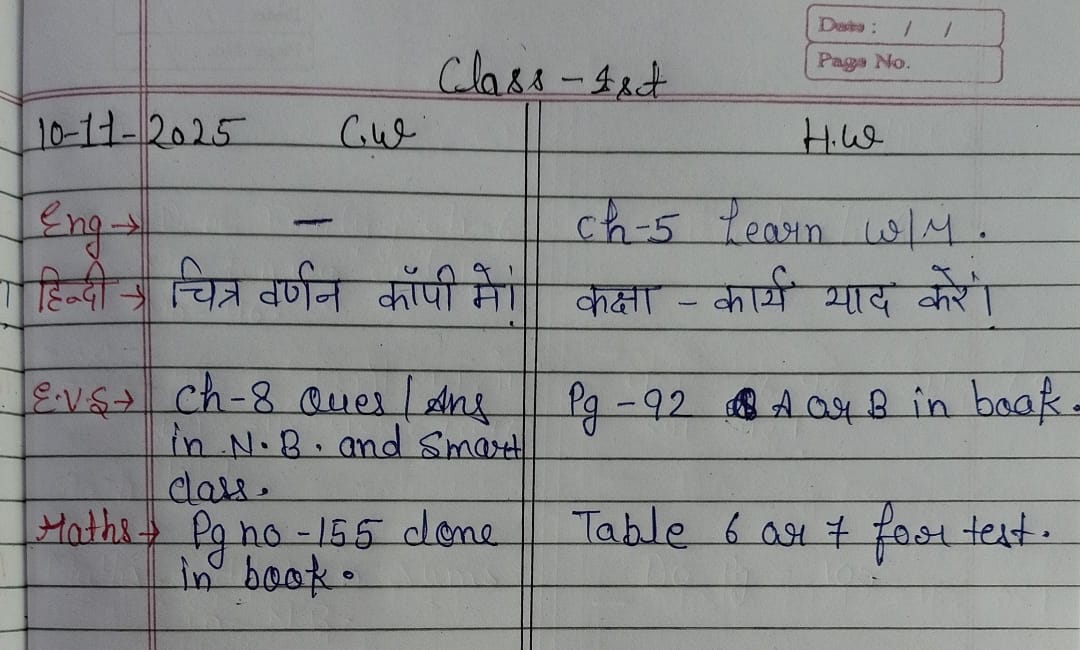 Date : / /
Page No.
Class - 1st
10-11-2025 C.W H.W
Eng → — Ch-5 Learn W/M.
हिन्दी → चित्र वर्णन कॉपी में। कक्षा - कार्य याद करें।
E.V.S → Ch-8 Ques / Ans Pg - 92 A or B in book.
in N.B. and Smart
class.
Maths → Pg no - 155 done Table 6 or 7 for test.
in book.